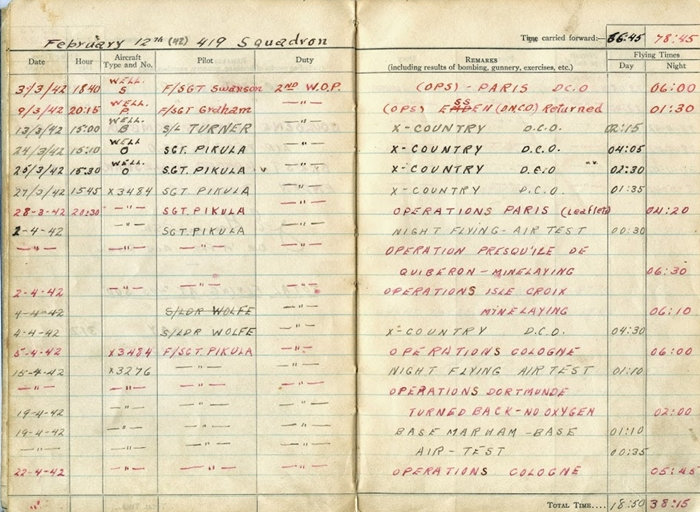 February 12th (42) 419 Squadron Time carried forward:— 86:45 78:45
Date Hour Aircraft Type and No. Pilot Duty REMARKS (including results of bombing, gunnery, exercises, etc.) Flying Times Day Night
3/3/42 1840 WELL. S F/SGT Swanson 2ND W.O.P. (OPS) - PARIS D.C.O 06:00
9/3/42 20:15 WELL. F/SGT Graham —"— (OPS) ESSEN (D.N.C.O) Returned 01:30
13/3/42 15:00 WELL. B S/L TURNER —"— X-COUNTRY D.C.O. 02:15
24/3/42 15:10 WELL O SGT. PIKULA —"— X-COUNTRY D.C.O. 04:05
25/3/42 15:30 WELL. O SGT. PIKULA —"— X-COUNTRY D.C.O "" 02:30
27/3/42 1545 X3484 SGT. PIKULA —"— X-COUNTRY D.C.O. 01:35
28-3-42 20:30 —"— SGT. PIKULA —"— OPERATIONS PARIS (Leaflets) 04:20
2-4-42 —"— SGT. PIKULA —"— NIGHT FLYING-AIR TEST 00:30
—"— —"— —"— —"— OPERATION PRESQU'ILE DE
QUIBERON-MINELAYING 06:30
2-4-42 —"— —"— OPERATIONS ISLE CROIX
4-4-42 S/LDR WOLFE MINELAYING 06:10
4-4-42 S/LDR WOLFE —"— X-COUNTRY D.C.O. 04:30
5-4-42 X3484 F/SGT. PIKULA —"— OPERATIONS COLOGNE 06:00
15-4-42 X3276 —"— —"— NIGHT FLYING AIR TEST 01:10
—"— —"— —"— —"— OPERATIONS DORTMUNDE
TURNED BACK-NO OXYGEN 02:00
19-4-42 —"— —"— —"— BASE MARHAM-BASE 01:10
19-4-42 —"— —"— —"— AIR-TEST 00:35
22-4-42 —"— —"— —"— OPERATIONS COLOGNE 05:45
TOTAL TIME.... 18:50 38:15